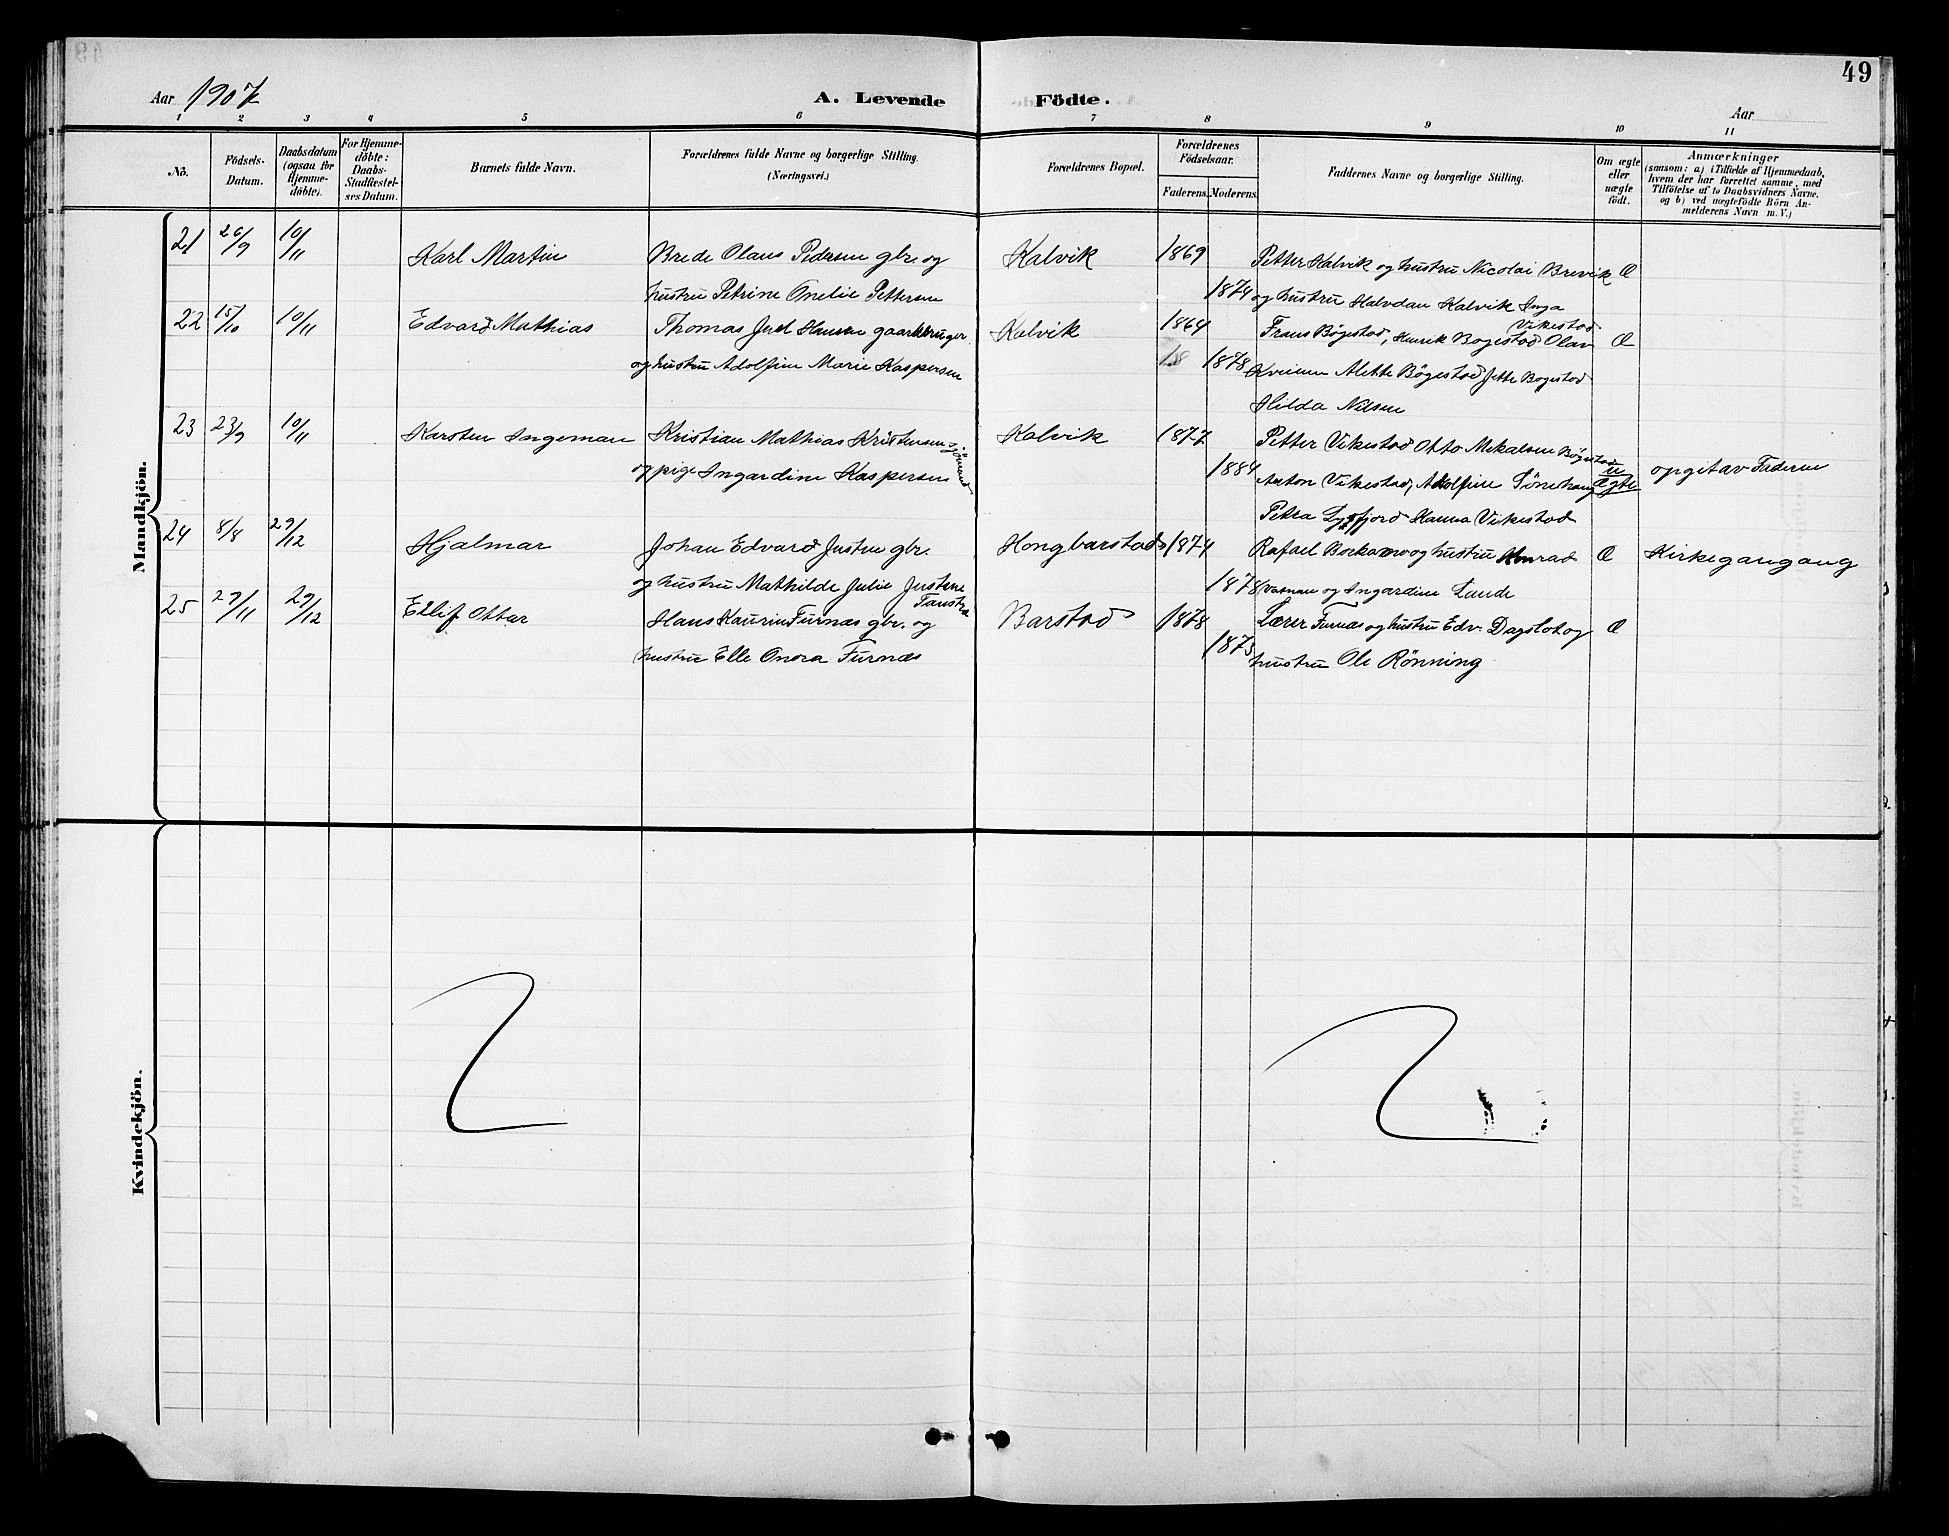 49
Aar 1907
A. Levende Födte.
Aar
1 2 3 4 5 6 7 8 9 10 11
No.
Födsels-Datum.
Daabsdatum (ogsaa for Hjemme-döbte).
For Hjemme-döbte: Daabs-Stadfæstel-ses Datum.
Barnets fulde Navn.
Forældrenes fulde Navne og borgerlige Stilling.
(Næringsvei.)
Forældrenes Bopæl.
Forældrenes Födselsaar.
Faderens. Moderens.
Faddernes Navne og borgerlige Stilling.
Om ægte eller uægte födt.
Anmærkninger
(saasom: a) i Tilfælde af Hjemmedaab, hvem der har forrettet samme, med Tilföielse af to Daabsvidners Navne, og b) ved uægtefödte Börn An-melderens Navn m. V.)
Mandkjön.
21 26/9 10/11 Karl Martin Brede Olaus Pedersen gbr. og Kalvik 1869 Petter Kalvik og hustru Nicolai Brevik Æ
hustru Petrine Onelie Pettersen 1874 og hustru Halvdan Kalvik Inga
Vikestad
22 15/10 10/11 Edvard Mathias Thomas Juel Hansen gaardbruger Kalvik 1864 Frans Bøgestad, Henrik Bogestad Olav Æ
og hustru Adolfine Marie Kaspersen 18 1878 Alette Bøgestad Jette Bogestad
Hilda Nilsen
23 23/9 10/11 Karsten Ingeman Kristian Mathias Kristensen sjömand Kalvik 1877 Petter Vikestad Otto Mikalsen Bøgestad
og pige Ingardine Kaspersen 1884 Anton Vikestad, Adolfine Tønehaug u Ægte opgit av Faderen
Petra Lysfjord Hanna Vikestad
24 8/8 29/12 Hjalmar Johan Edvard Justen gbr. Hongbarstad 1874 Rafael og hustru Konrad Æ Kirkegangang
og hustru Mathilde Julie Justene 1878 og Ingardine Lande
25 27/11 29/12 Ellif Ottar Hans Kaurin Furnæs gbr. og Barstad 1878 Lærer Furnæs og hustru Edv. Dagslot og Æ
hustru Elle Onora Furnæs 1873 hustru Ole Rønning
Kvindekjön.